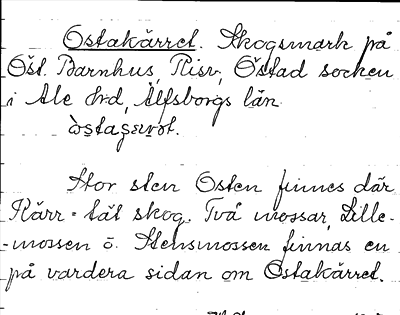 Ostakärret. Skogsmark på
Öst. Barnhus, Risv, Östad socken
i Ale hrd, Älfsborgs län
Stor sten Osten finnes där
Kärr = tät skog. Två mossar, Lille-
-mossen o. Stensmossen finnas en
på vardera sidan om Ostakärret.